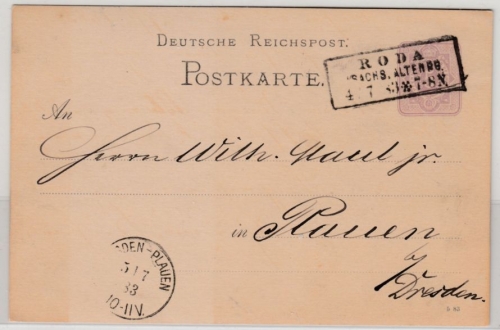 DEUTSCHE REICHSPOST.
POSTKARTE.
RODA
SACHS. ALTENBG.
4 7 83 * 7-8 N
An
Herrn Wilh. Maul jr.
in Plauen
b/Dresden.
DEN-PLAUEN
5 7
83
10-11V.